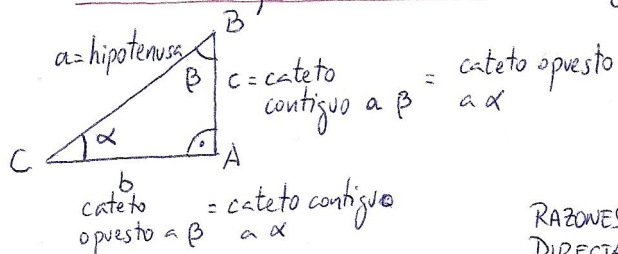 B
a = hipotenusa
β
c = cateto contiguo a β = cateto opuesto a α
α
C
A
b
cateto opuesto a β = cateto contiguo a α
RAZONES